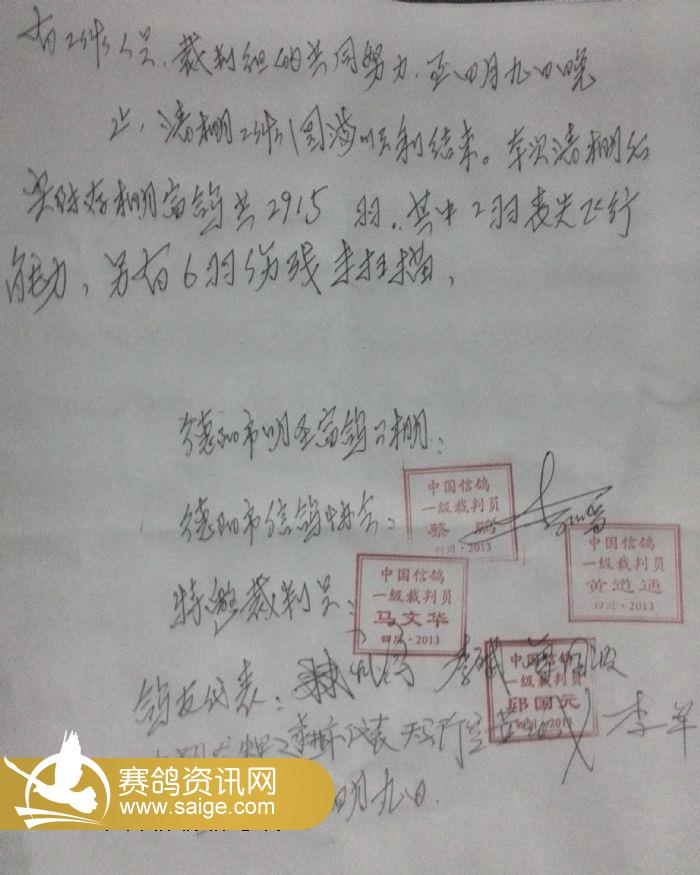 有工作人员、裁判组的共同努力,至四月九日晚
止,清棚工作圆满顺利结束。本次清棚后
实际存棚赛鸽共2915羽。其中2羽丧失飞行
能力,另有6羽伤残未扫描,
德阳市明圣赛鸽公棚:
德阳市信鸽协会:
中国信鸽
一级裁判员
蔡鹏
四川·2013
中国信鸽
一级裁判员
黄道通
四川·2013
特邀裁判员:
中国信鸽
一级裁判员
马文华
四川·2013
鸽友代表:
中国信鸽
一级裁判员
郭国元
四川·2013
李军
四月九日
赛鸽资讯网
www.saige.com